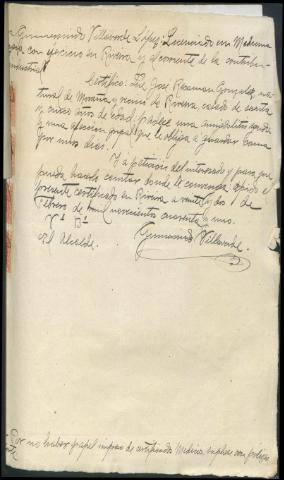 Gumersindo Villaverde López; Licenciado en Medicina
con ejercicio en Riveira, y al corriente de la contribu-
industrial
Certifico: Que José González na-
tural de y vecino de Riveira, casado de
y años de edad, padece una aguda
y una afección que le obliga a guardar cama
por unos días.
Y a petición del interesado y para que
pueda hacerlo constar donde le convenga, expido el
presente certificado en Riveira a veinte y dos de
Febrero de mil novecientos cuarenta y uno.
Vº Bº
El Alcalde.
Gumersindo Villaverde
Por no haber papel impreso de certificado Médico, suplase con póliza